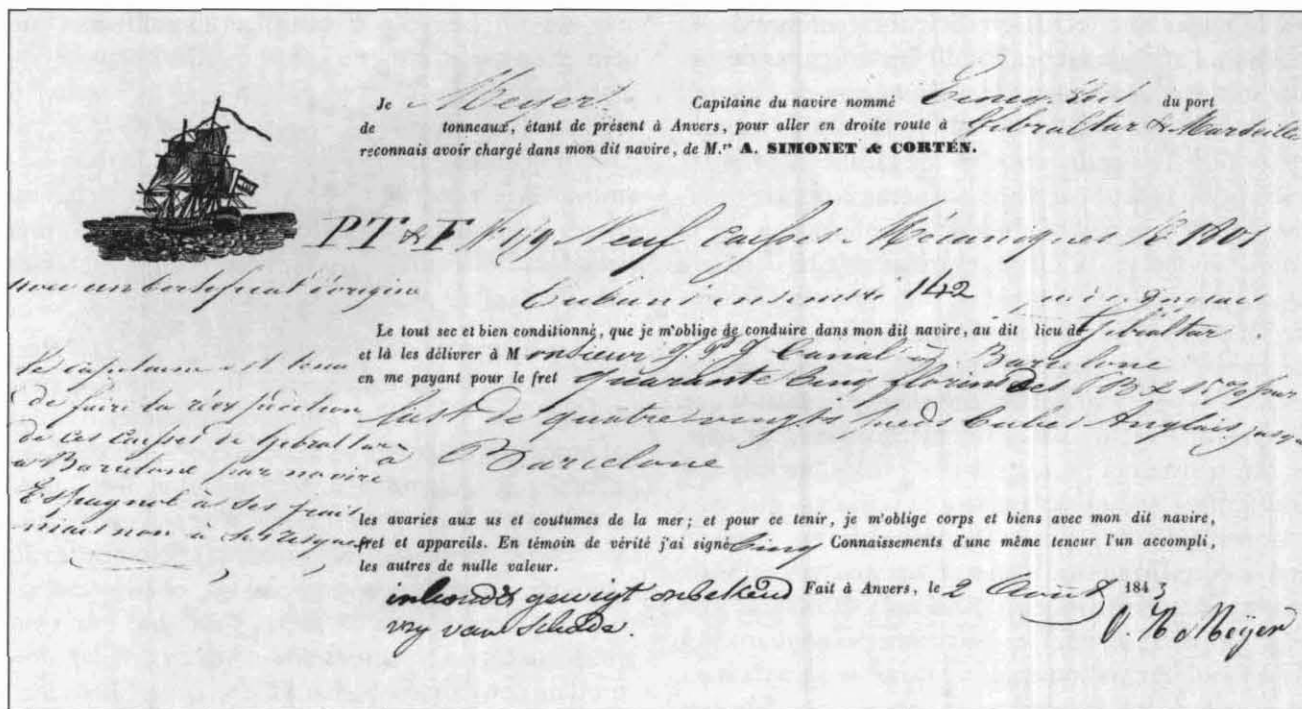 Je Meyer Capitaine du navire nommé du port
de tonneaux, étant de présent à Anvers, pour aller en droite route à Gibraltar & Marseille
reconnais avoir chargé dans mon dit navire, de M.rs A. SIMONET & CORTÉN.
PT & F No 1/9 Neuf Caisses Mécaniques
avec un certificat d'origine
142
Le tout sec et bien conditionné, que je m'oblige de conduire dans mon dit navire, au dit lieu de Gibraltar
et là les délivrer à Monsieur Canal à Barcelone
en me payant pour le fret Quarante Cinq florins des P. B. & 15 % par
last de quatre vingts pieds Cubes Anglais
à Barcelone
Le capitaine est tenu
de faire la réexpédition
de ces Caisses de Gibraltar
a Barcelone par navire
Espagnol à ses frais
mais non à ses risques
les avaries aux us et coutumes de la mer; et pour ce tenir, je m'oblige corps et biens avec mon dit navire,
fret et appareils. En témoin de vérité j'ai signé Cinq Connaissements d'une même teneur l'un accompli,
les autres de nulle valeur.
inhoud & gewigt onbekend Fait à Anvers, le 2 Août 1843
vry van Schade. Meyer